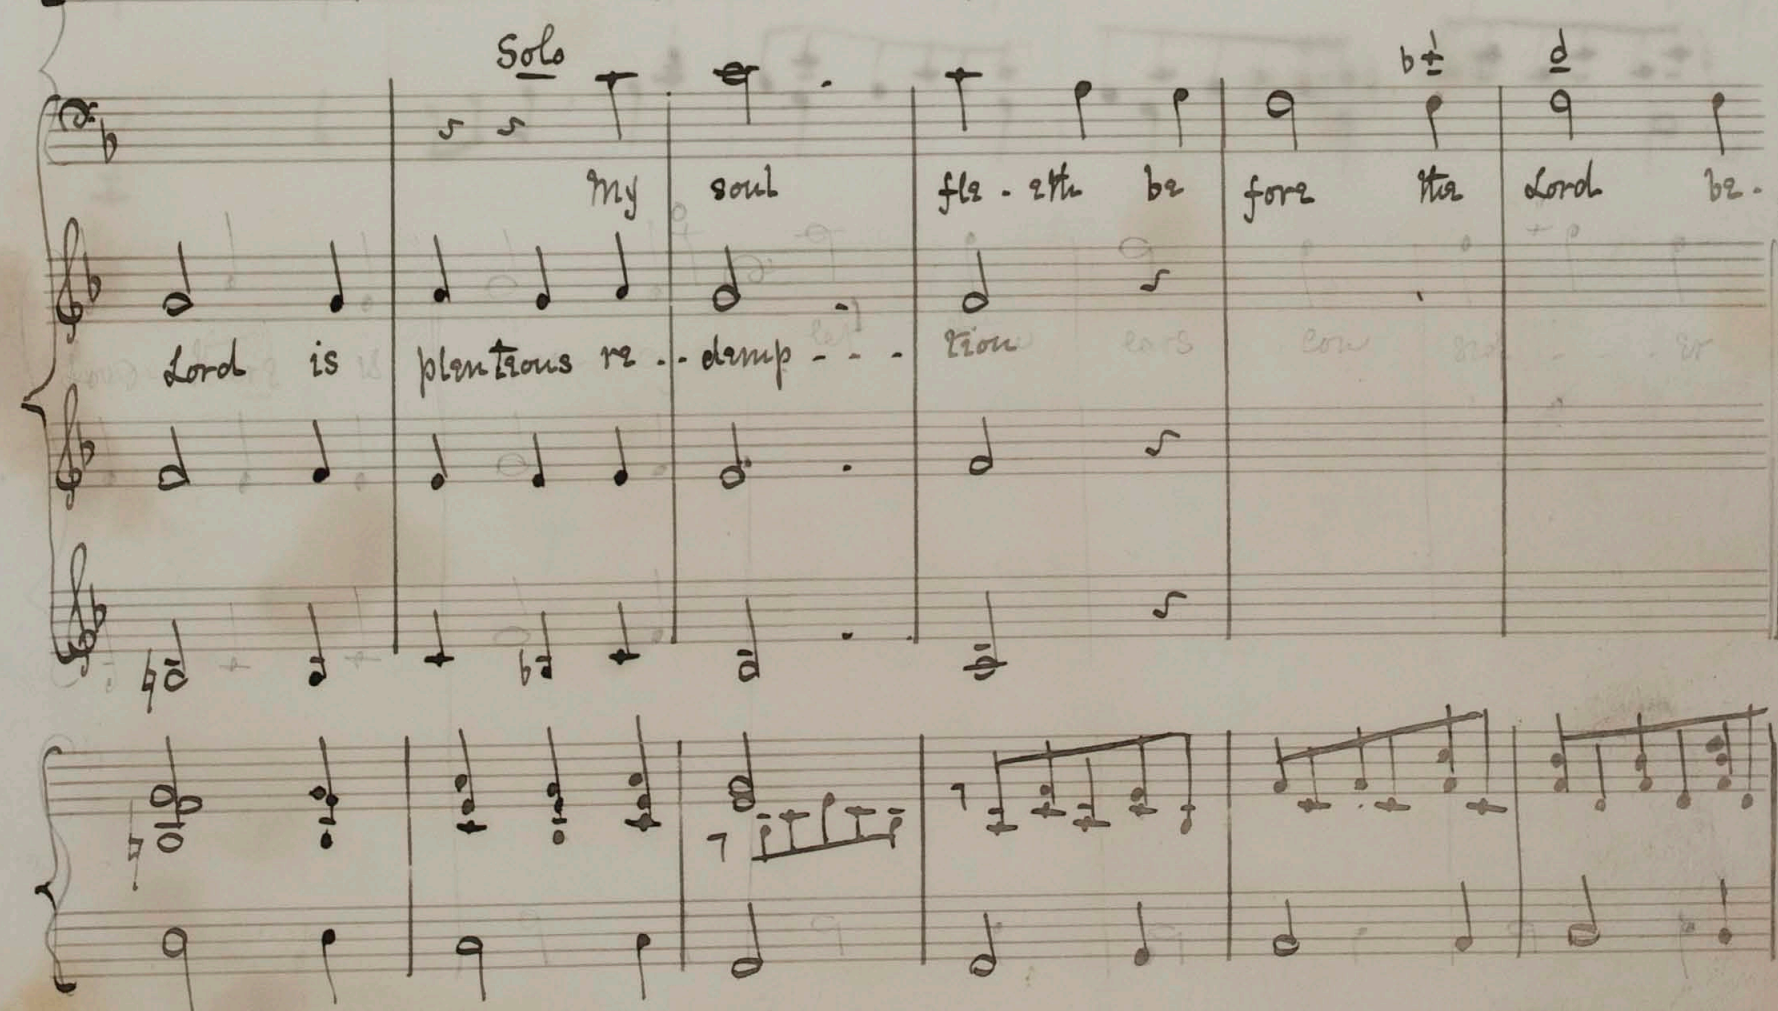 Solo
My soul fle - eth be fore the Lord be -
Lord is plenteous re - - demp - - - tion